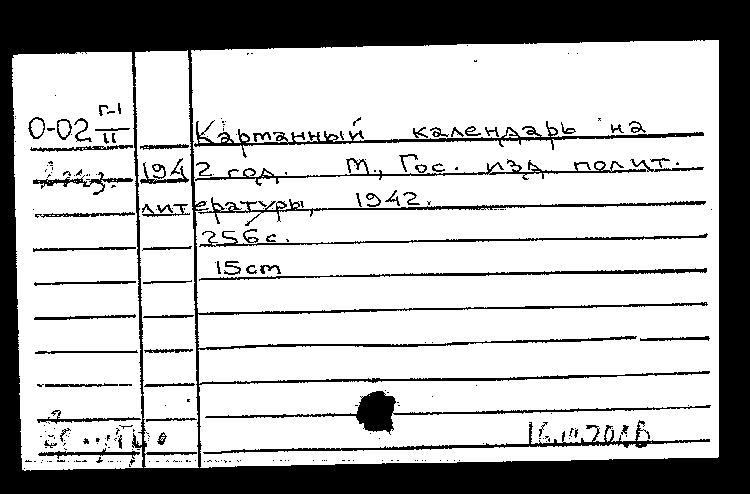 0-02 Г-I
II
Картанный календарь на
1942 год. М., Гос. изд полит.
литературы, 1942.
256 с.
15cm